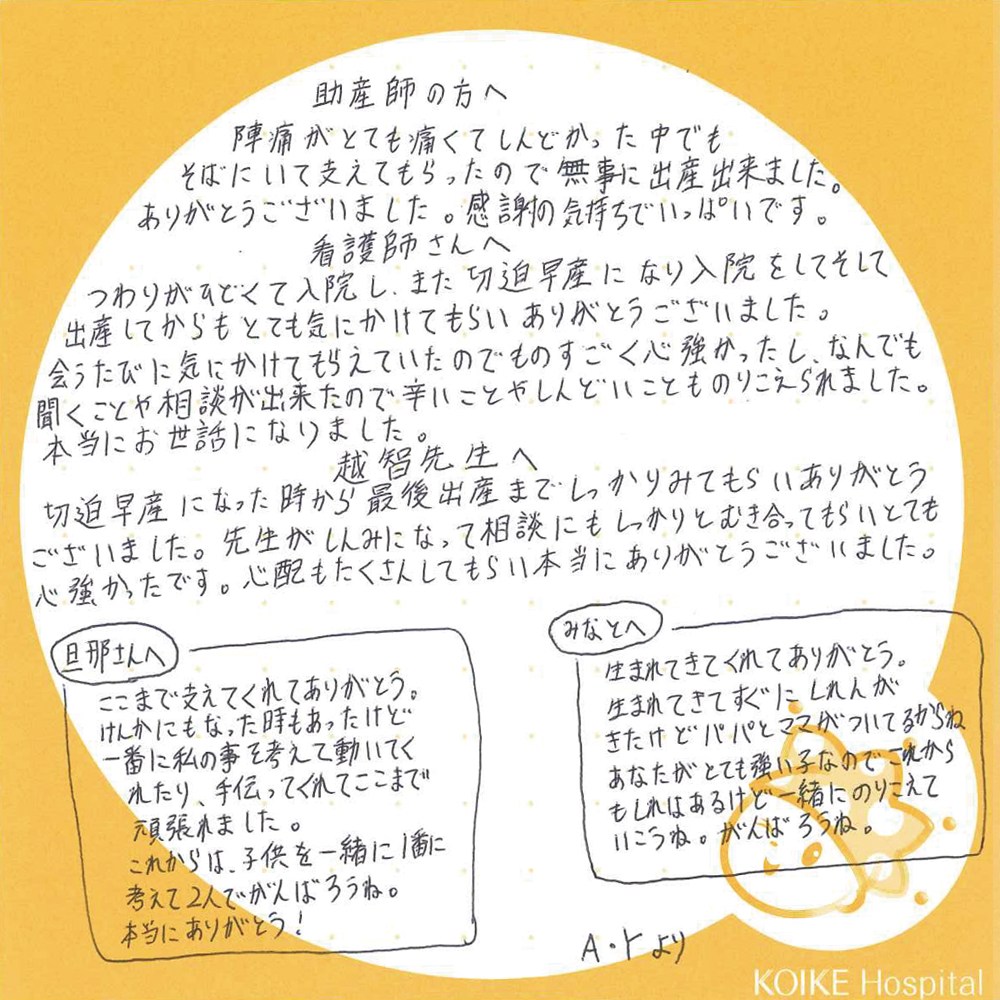 助産師の方へ
陣痛がとても痛くてしんどかった中でも
そばにいて支えてもらったので無事に出産出来ました。
ありがとうございました。感謝の気持ちでいっぱいです。
看護師さんへ
つわりがひどくて入院し、また切迫早産になり入院をしてそして
出産してからもとても気にかけてもらいありがとうございました。
会うたびに気にかけてもらえていたのでものすごく心強かったし、なんでも
聞くことや相談が出来たので辛いことやしんどいことものりこえられました。
本当にお世話になりました。
越智先生へ
切迫早産になった時から最後出産までしっかりみてもらいありがとう
ございました。先生がしんみになって相談にもしっかりとむき合ってもらいとても
心強かったです。心配もたくさんしてもらい本当にありがとうございました。
旦那さんへ
ここまで支えてくれてありがとう。
けんかにもなった時もあったけど
一番に私の事を考えて動いてく
れたり、手伝ってくれてここまで
頑張れました。
これからは、子供を一緒に1番に
考えて2人でがんばろうね。
本当にありがとう!
みなとへ
生まれてきてくれてありがとう。
生まれてきてすぐにしれんが
きたけどパパとママがついてるからね
あなたがとても強い子なのでこれから
もしれはあるけど一緒にのりこえて
いこうね。がんばろうね。
A・Yより
KOIKE Hospital